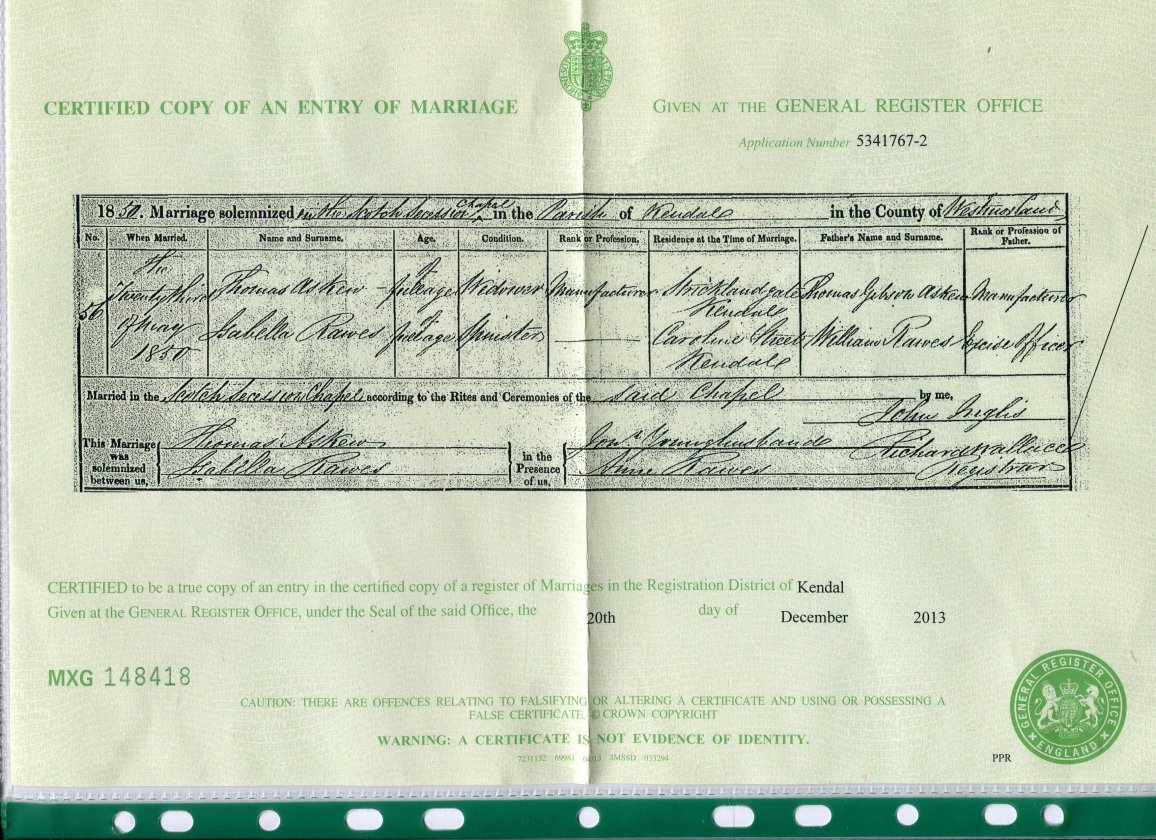 CERTIFIED COPY OF AN ENTRY OF MARRIAGE
GIVEN AT THE GENERAL REGISTER OFFICE
Application Number 5341767-2
1850. Marriage solemnized in the Scotch Secession Chapel in the Parish of Kendale in the County of Westmorland
No. When Married. Name and Surname. Age. Condition. Rank or Profession. Residence at the Time of Marriage. Father's Name and Surname. Rank or Profession of Father.
56 The Twenty third of May 1850
Thomas Askew of full age Widower Manufacturer Stricklandgate Kendale Thomas Gibson Askew Manufacturer
Isabella Rawes of full age Spinster Caroline Street Kendale William Rawes Excise Officer
Married in the Scotch Secession Chapel according to the Rites and Ceremonies of the said Chapel by me,
John Inglis
This Marriage was solemnized between us, Thomas Askew Isabella Rawes
in the Presence of us, Jonn. Younghusband Anne Rawes
Richard Wallace Registrar
CERTIFIED to be a true copy of an entry in the certified copy of a register of Marriages in the Registration District of Kendal
Given at the GENERAL REGISTER OFFICE, under the Seal of the said Office, the 20th day of December 2013
MXG 148418
CAUTION: THERE ARE OFFENCES RELATING TO FALSIFYING OR ALTERING A CERTIFICATE AND USING OR POSSESSING A
FALSE CERTIFICATE. © CROWN COPYRIGHT
WARNING: A CERTIFICATE IS NOT EVIDENCE OF IDENTITY.
3MSSD 033294
GENERAL REGISTER OFFICE ENGLAND
PPR